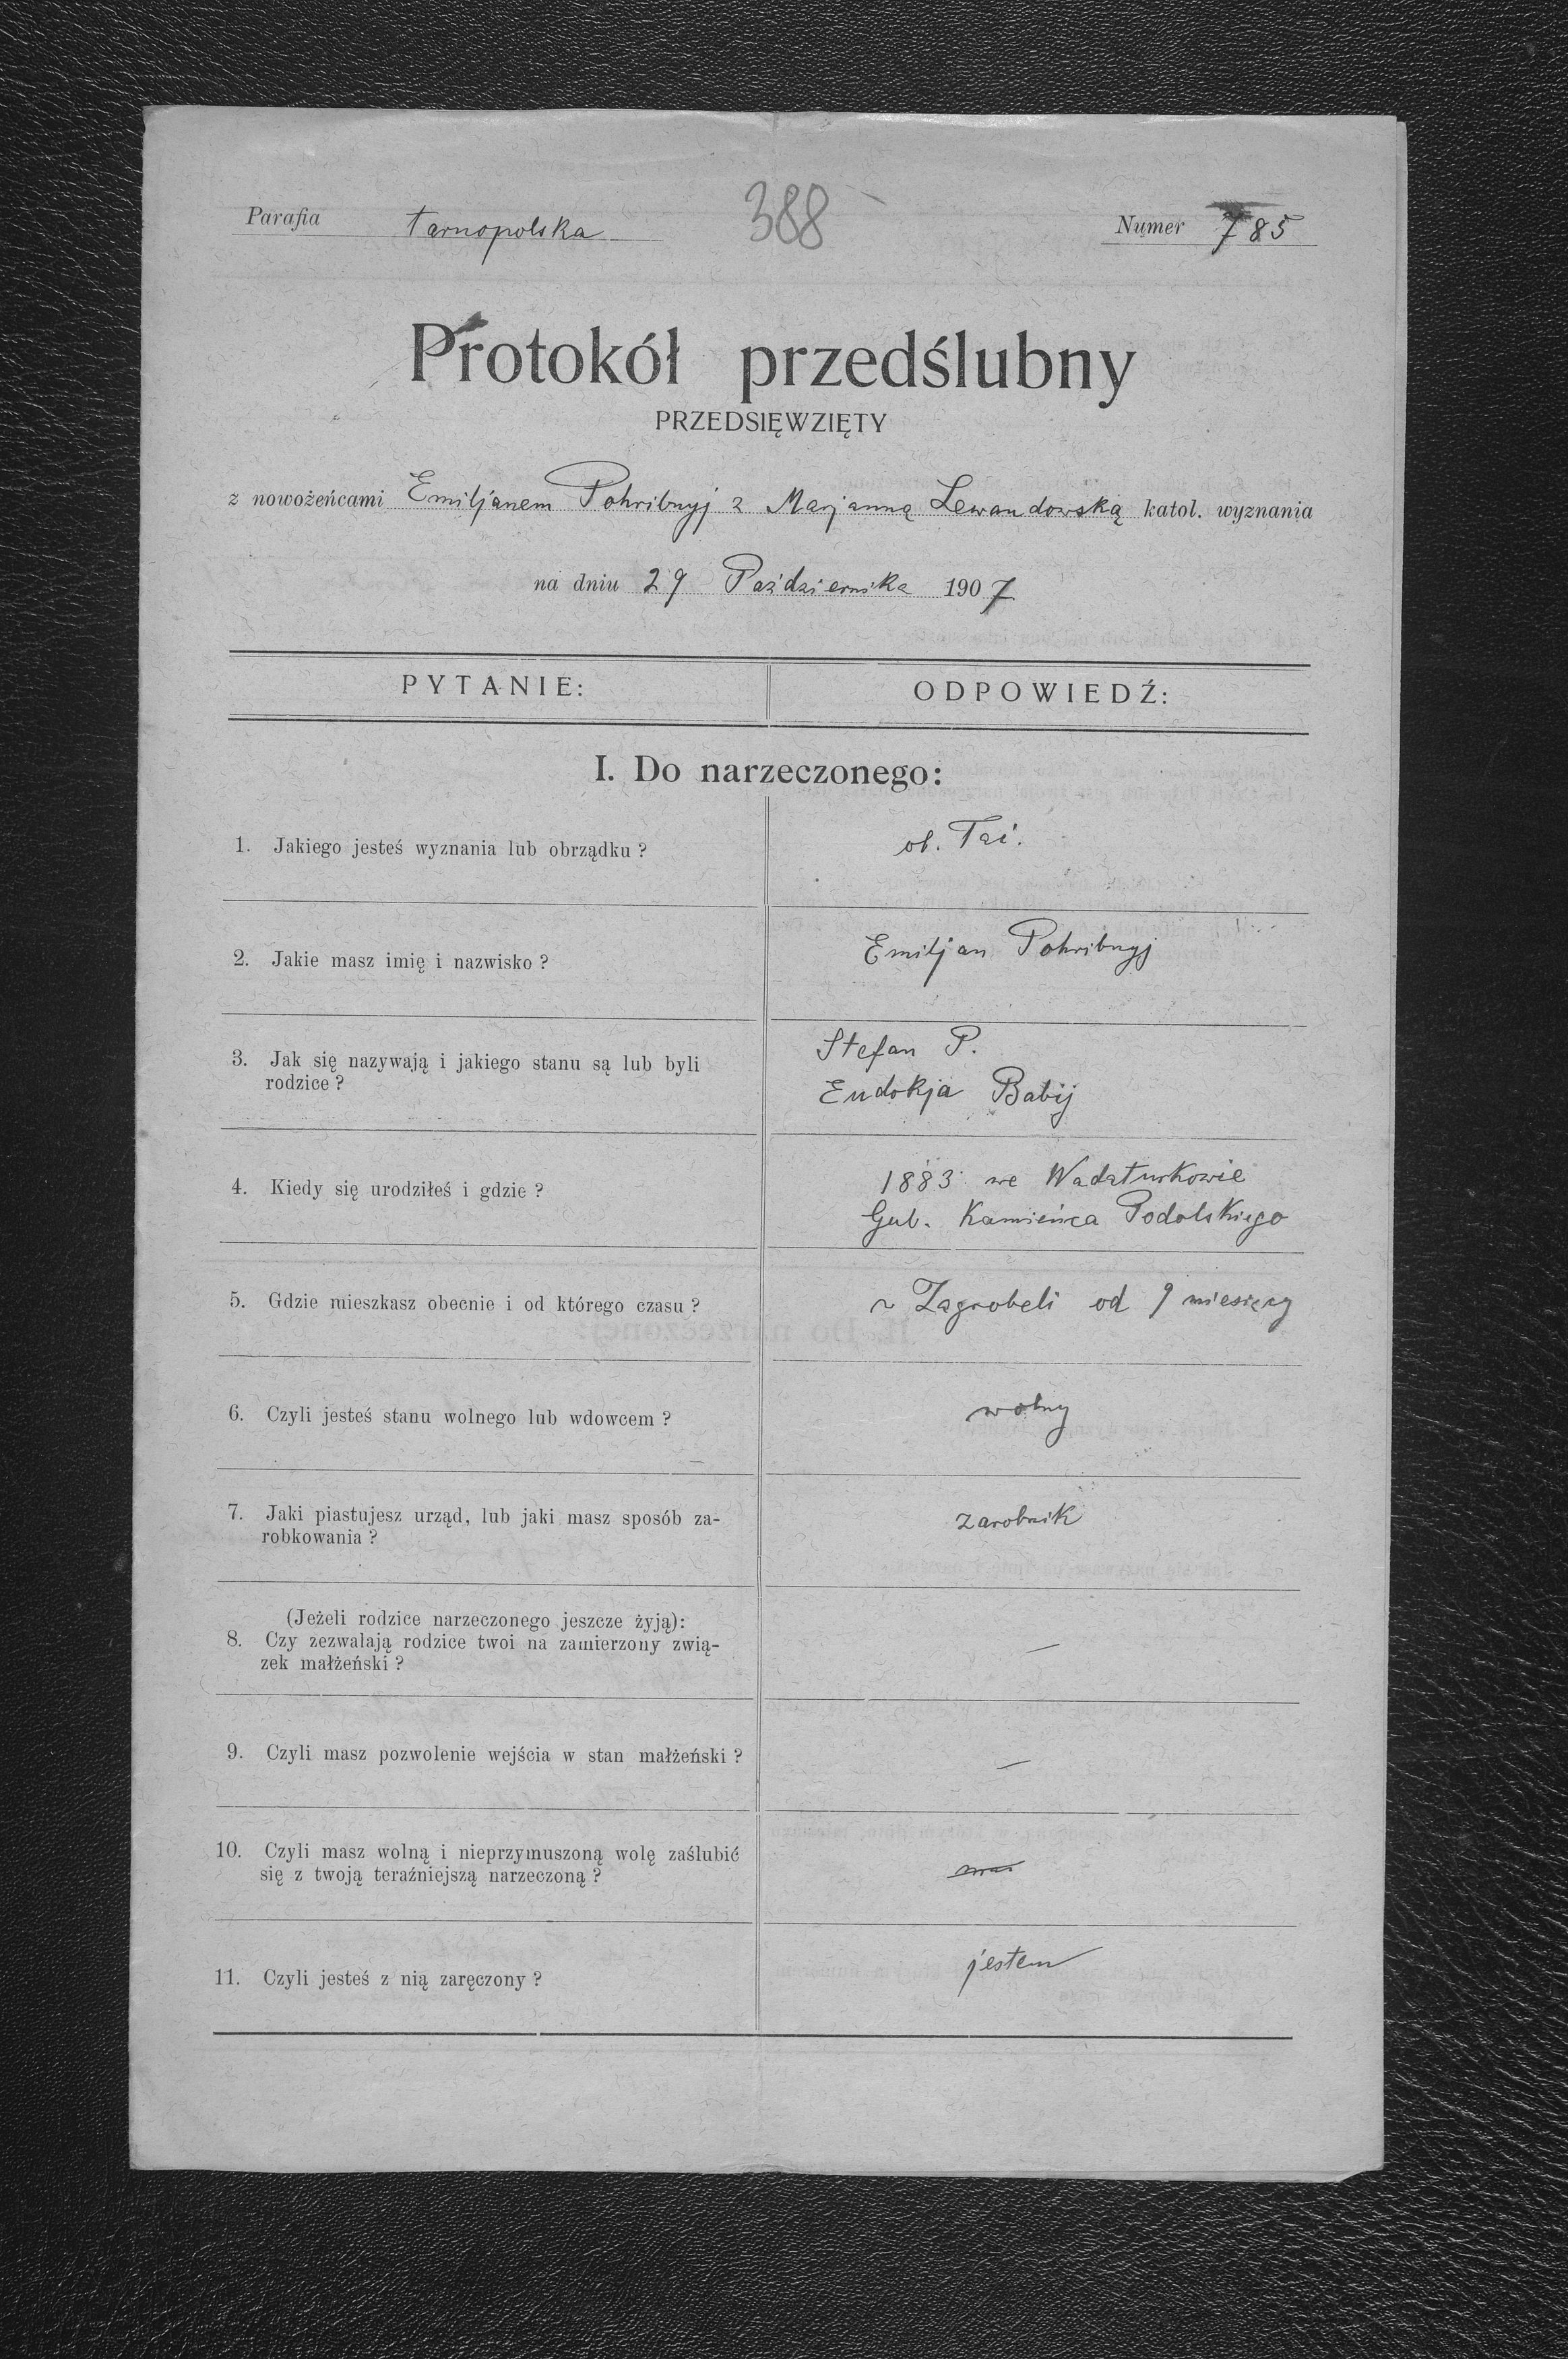 Parafia tarnopolska 388 Numer 785
Protokół przedślubny
PRZEDSIĘWZIĘTY
z nowożeńcami Emiljanem Pohribnyj z Marjanną Lewandowską katol. wyznania
na dniu 29 Października 1907
PYTANIE: ODPOWIEDŹ:
I. Do narzeczonego:
1. Jakiego jesteś wyznania lub obrządku ? ob. łać.
2. Jakie masz imię i nazwisko ? Emiljan Pohribnyj
3. Jak się nazywają i jakiego stanu są lub byli
rodzice ?
Stefan P.
Eudokja Babij
4. Kiedy się urodziłeś i gdzie ?
1883 we Wadaturkowie
Gub. Kamieńca Podolskiego
5. Gdzie mieszkasz obecnie i od którego czasu ? w Zagrobeli od 9 miesięcy
6. Czyli jesteś stanu wolnego lub wdowcem ? wolny
7. Jaki piastujesz urząd, lub jaki masz sposób za-
robkowania ?
zarobnik
(Jeżeli rodzice narzeczonego jeszcze żyją):
8. Czy zezwalają rodzice twoi na zamierzony zwią-
zek małżeński ?
—
9. Czyli masz pozwolenie wejścia w stan małżeński ? —
10. Czyli masz wolną i nieprzymuszoną wolę zaślubić
się z twoją teraźniejszą narzeczoną ?
11. Czyli jesteś z nią zaręczony ? jestem